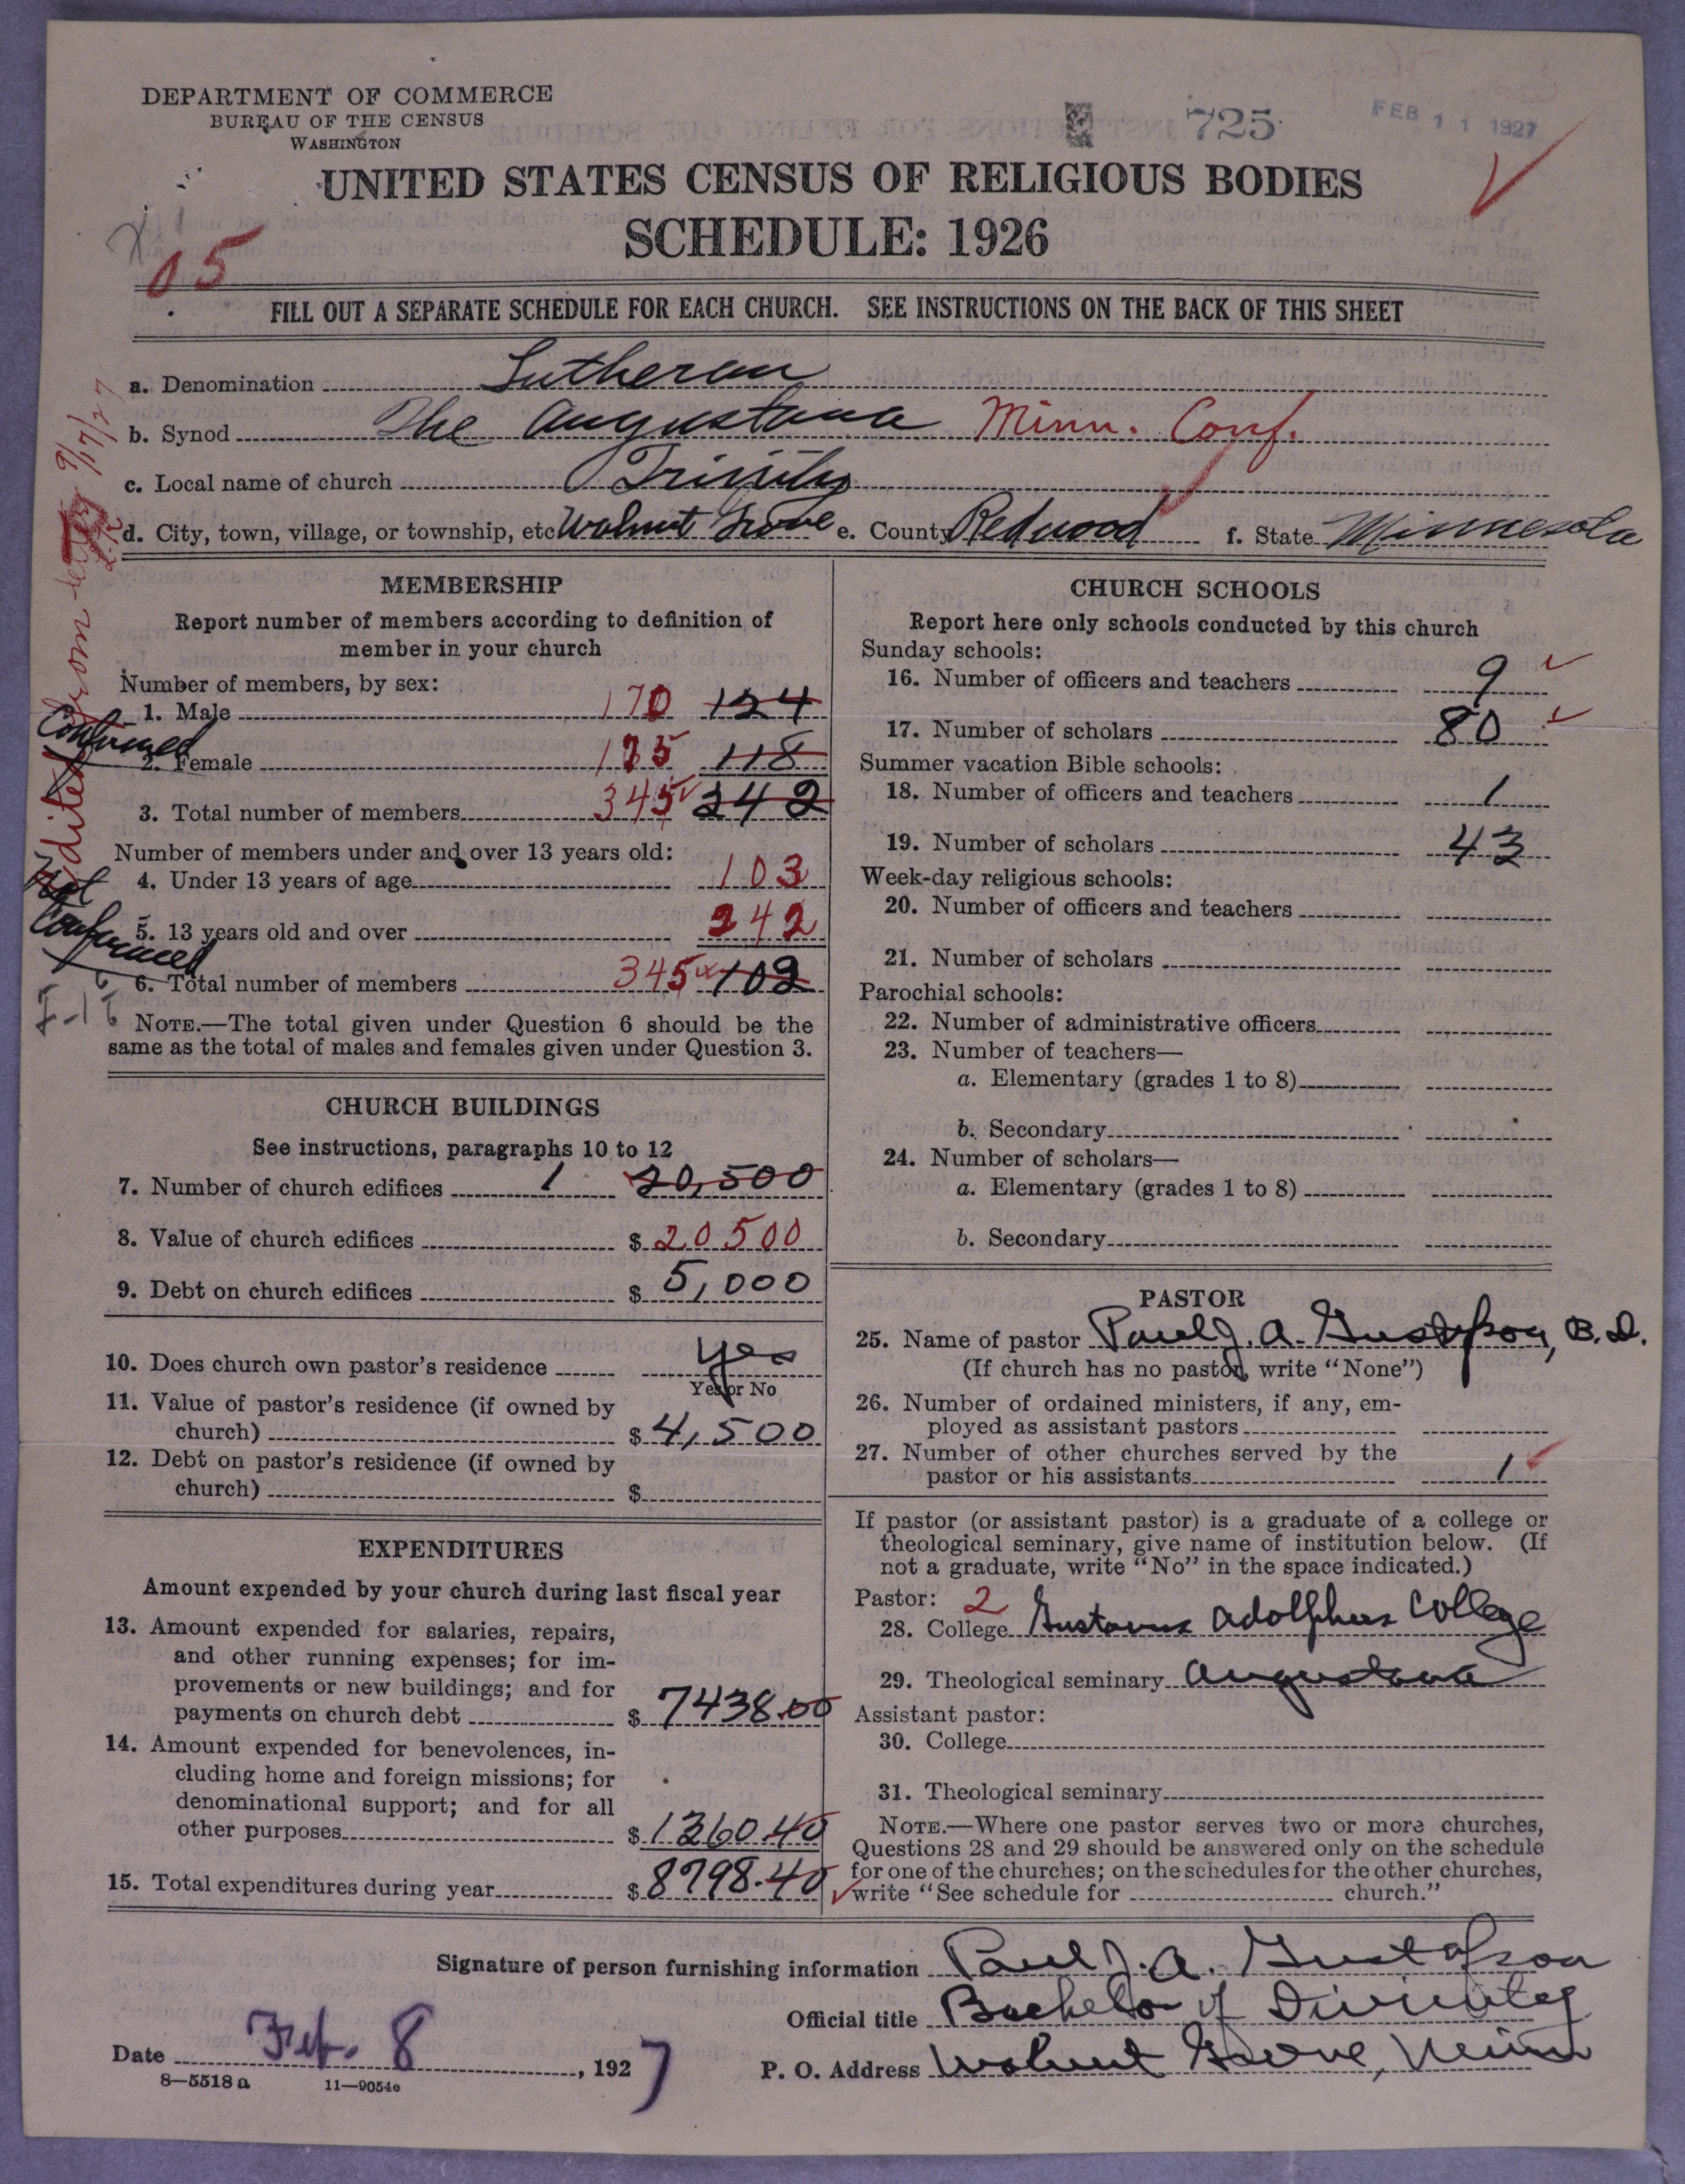 DEPARTMENT OF COMMERCE
BUREAU OF THE CENSUS
WASHINGTON
725
FEB 11 1927
UNITED STATES CENSUS OF RELIGIOUS BODIES
SCHEDULE: 1926
05
FILL OUT A SEPARATE SCHEDULE FOR EACH CHURCH. SEE INSTRUCTIONS ON THE BACK OF THIS SHEET
a. Denomination Lutheran
b. Synod The Augustana Minn. Conf.
c. Local name of church Trinity
d. City, town, village, or township, etc Walnut Grove e. County Redwood f. State Minnesota
Edited from letter 9/17/27
MEMBERSHIP
Report number of members according to definition of
member in your church
Number of members, by sex:
1. Male 170 124
Confirmed
2. Female 175 118
3. Total number of members 345 242
Number of members under and over 13 years old:
4. Under 13 years of age 103
Not
Confirmed
5. 13 years old and over 242
6. Total number of members 345 102
NOTE.—The total given under Question 6 should be the
same as the total of males and females given under Question 3.
CHURCH BUILDINGS
See instructions, paragraphs 10 to 12
7. Number of church edifices 1 20,500
8. Value of church edifices $ 20500
9. Debt on church edifices $ 5,000
10. Does church own pastor's residence yes
Yes or No
11. Value of pastor's residence (if owned by
church) $ 4,500
12. Debt on pastor's residence (if owned by
church) $
EXPENDITURES
Amount expended by your church during last fiscal year
13. Amount expended for salaries, repairs,
and other running expenses; for im-
provements or new buildings; and for
payments on church debt $ 7438.00
14. Amount expended for benevolences, in-
cluding home and foreign missions; for
denominational support; and for all
other purposes $ 1360.40
15. Total expenditures during year $ 8798.40
CHURCH SCHOOLS
Report here only schools conducted by this church
Sunday schools:
16. Number of officers and teachers 9
17. Number of scholars 80
Summer vacation Bible schools:
18. Number of officers and teachers 1
19. Number of scholars 43
Week-day religious schools:
20. Number of officers and teachers
21. Number of scholars
Parochial schools:
22. Number of administrative officers
23. Number of teachers—
a. Elementary (grades 1 to 8)
b. Secondary
24. Number of scholars—
a. Elementary (grades 1 to 8)
b. Secondary
PASTOR
25. Name of pastor Paul J. A. Gustafson, B.D.
(If church has no pastor, write "None")
26. Number of ordained ministers, if any, em-
ployed as assistant pastors
27. Number of other churches served by the
pastor or his assistants 1
If pastor (or assistant pastor) is a graduate of a college or
theological seminary, give name of institution below. (If
not a graduate, write "No" in the space indicated.)
Pastor: 2
28. College Gustavus Adolphus College
29. Theological seminary Augustana
Assistant pastor:
30. College
31. Theological seminary
NOTE.—Where one pastor serves two or more churches,
Questions 28 and 29 should be answered only on the schedule
for one of the churches; on the schedules for the other churches,
write "See schedule for church."
Signature of person furnishing information Paul J. A. Gustafson
Official title Bachelor of Divinity
Date Feb. 8, 1927
P. O. Address Walnut Grove, Minn
8—5518 a 11—9054e